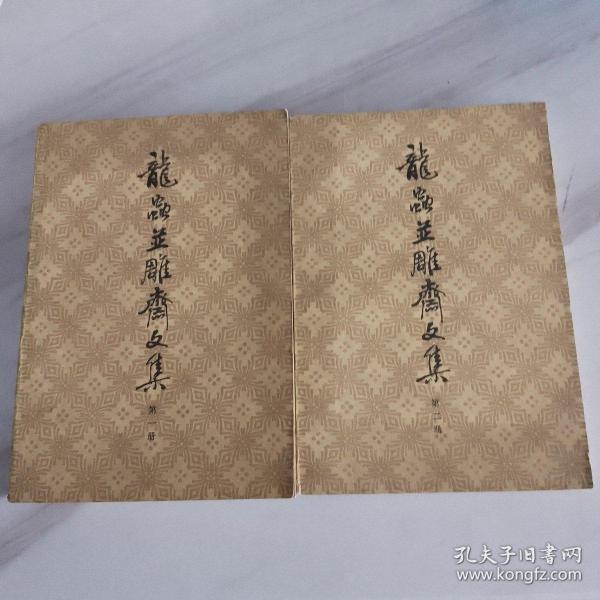 龍蟲並雕齋文集
第一册
龍蟲並雕齋文集
第二册
孔夫子旧书网
www.kongfz.com